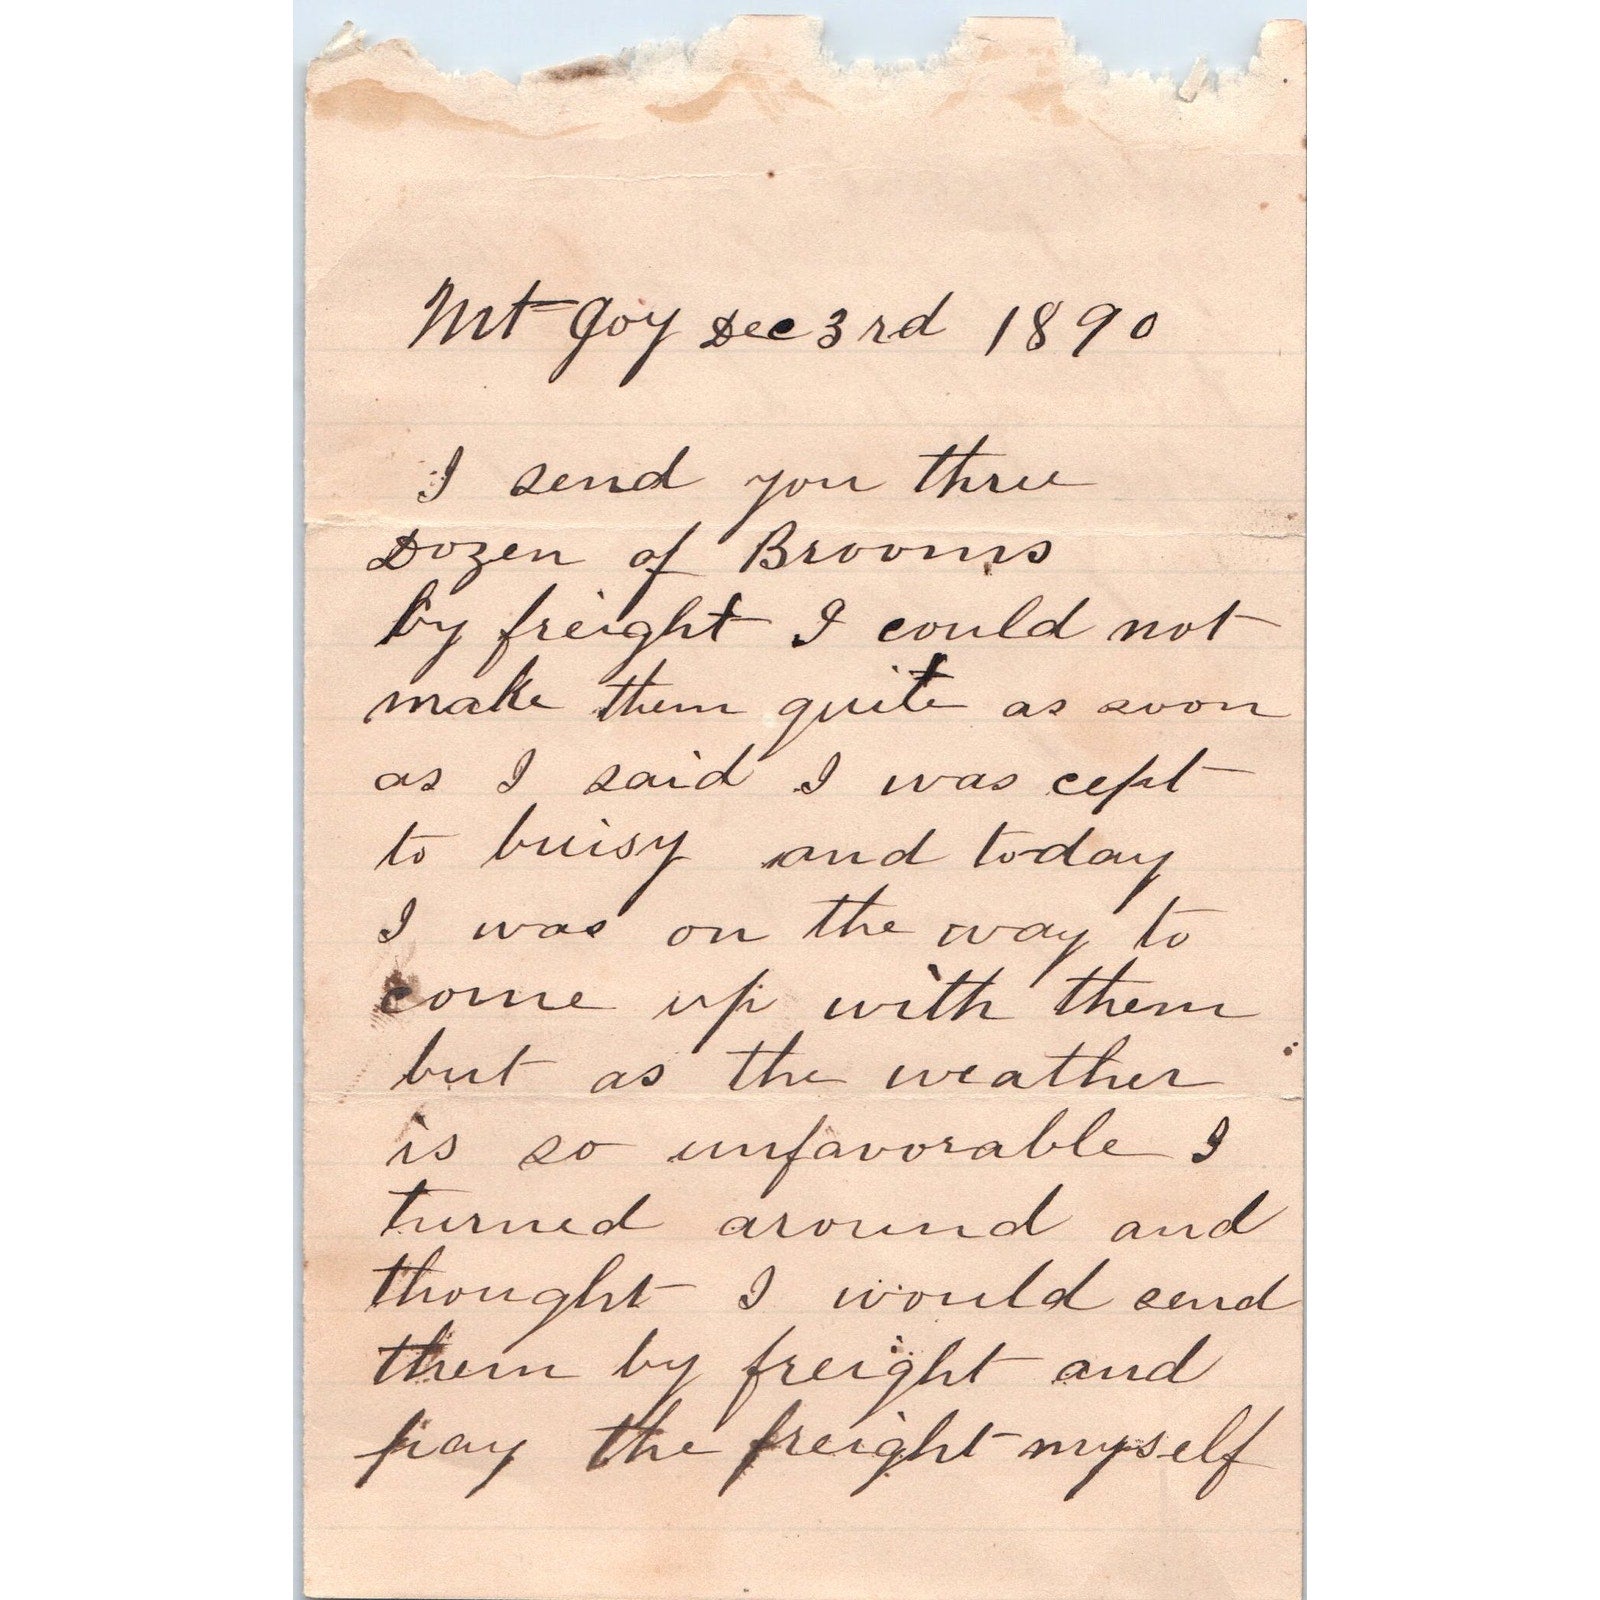 Mt Joy Dec 3rd 1890
I send you three
Dozen of Brooms
by freight I could not
make them quite as soon
as I said I was cept
to buisy and today
I was on the way to
come up with them
but as the weather
is so unfavorable I
turned around and
thought I would send
them by freight and
pay the freight myself